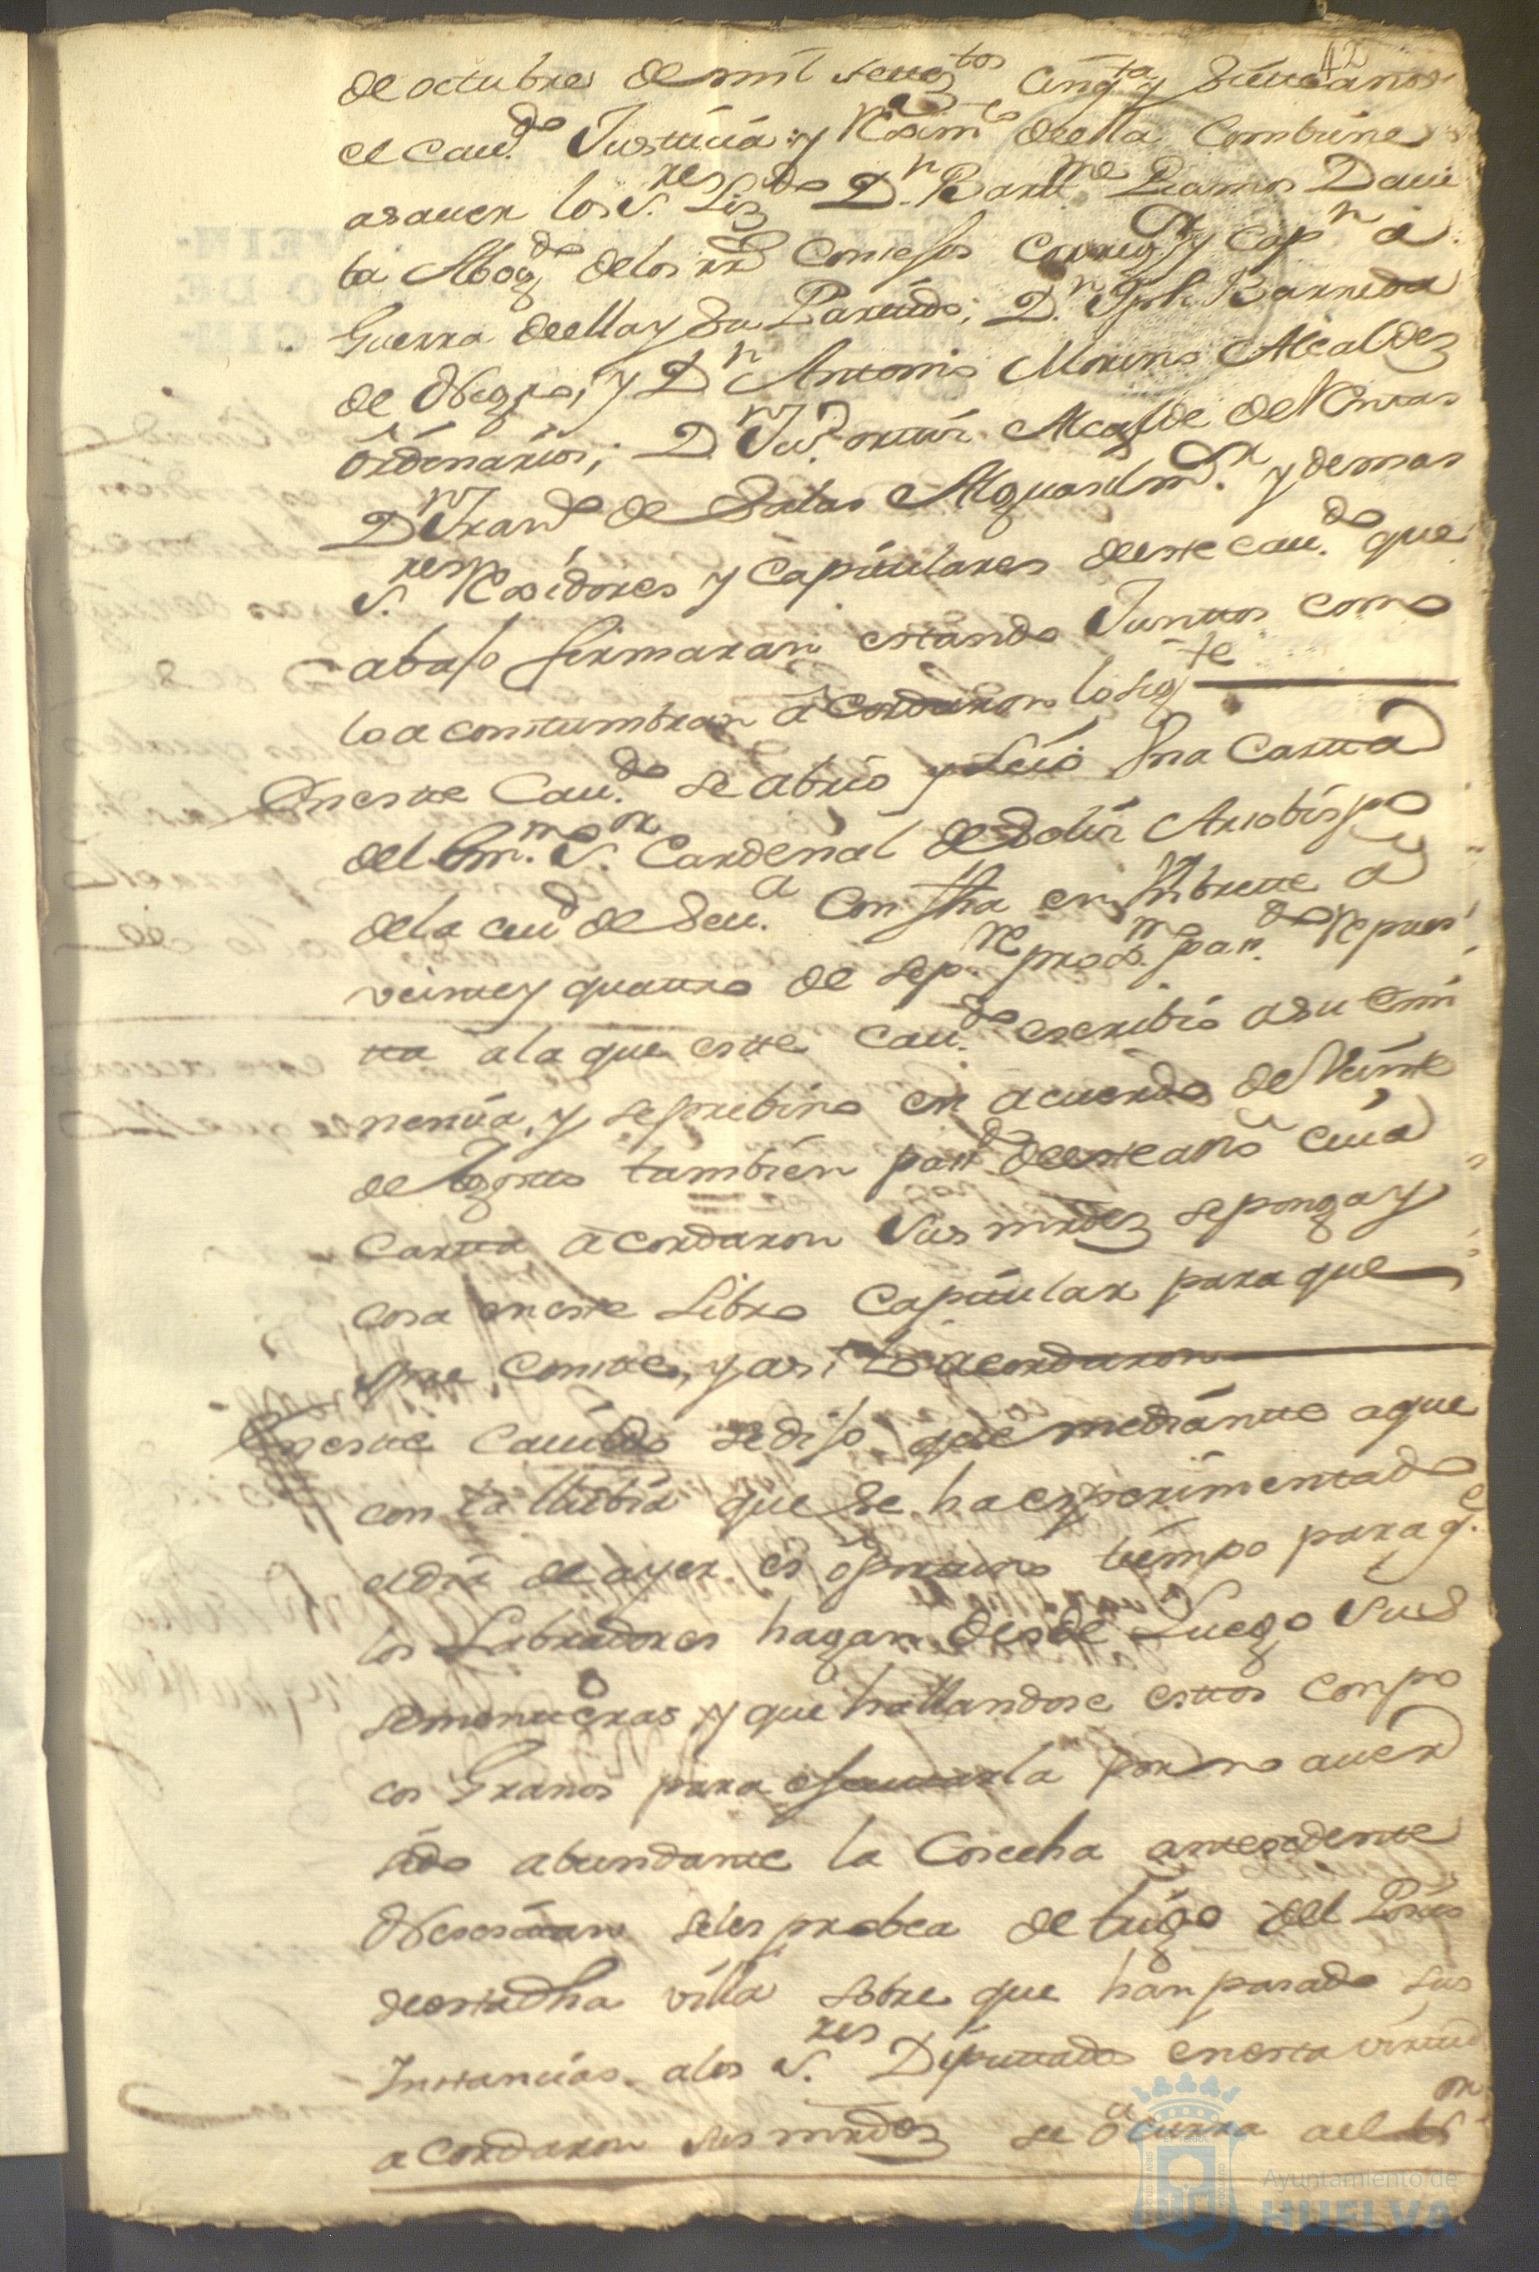 42
de octubre de mil setez.tos Cinq.ta y Siete años
el Cau.do Justicia y Reximt.o de ella Combiene
a sauer los S.res Liz.do D.n Bartt.me Ramos Daui
la Abog.do de los RR.s Consejos Correg.or y Cap.n a
Guerra de ella y Su Partido; D.n Jph. Barreda
de Negro, y D.n Antonio Moreno Alcaldes
Ordinarios; D.n Ju.o ortiz Alcalde de
D.n Fran.co de Salas Alguasil m.or y demas
S.res Rexidores y Capitulares de este Cau.do que
abajo firmaran estando Juntos como
lo acostumbran acordaron lo sig.te
En este Cau.do se abrio y Leio Vna Cartta
del Em.mo S.or Cardenal de Solis Arzobispo
de la ciud de Seu.a Con fha en Vmbrette a
veinte y quattro de sep.re prox.mo pas.do Respues
tta a la que este Cau.do escribio a su Emi
nencia, y se prebino en acuerdo de Veinte
de Agosto tambien pas.do de este año cuia
Cartta acordaron Sus mrdez se ponga y
cosa en este Libro Capitular para que
spre Conste, y asi Lo acordaron
En este Cauildo se dijo que mediantte a que
con la llubia que se ha experimentado
el dia de ayer es oportuno tiempo para q.e
los Labradores hagan desde Luego Sus
sementeras y que hallandose esttos con po
cos Granos para efectuarla por no auer
sido abundante la Cosecha antesedente
Necesitan se les probea de trigo del Posito
de esta dha villa sobre que han pasado sus
Instancias a los S.res Diputtados en esta virtud
acordaron sus mrdez se ocurra a el S.or
Ayuntamiento de
HUELVA